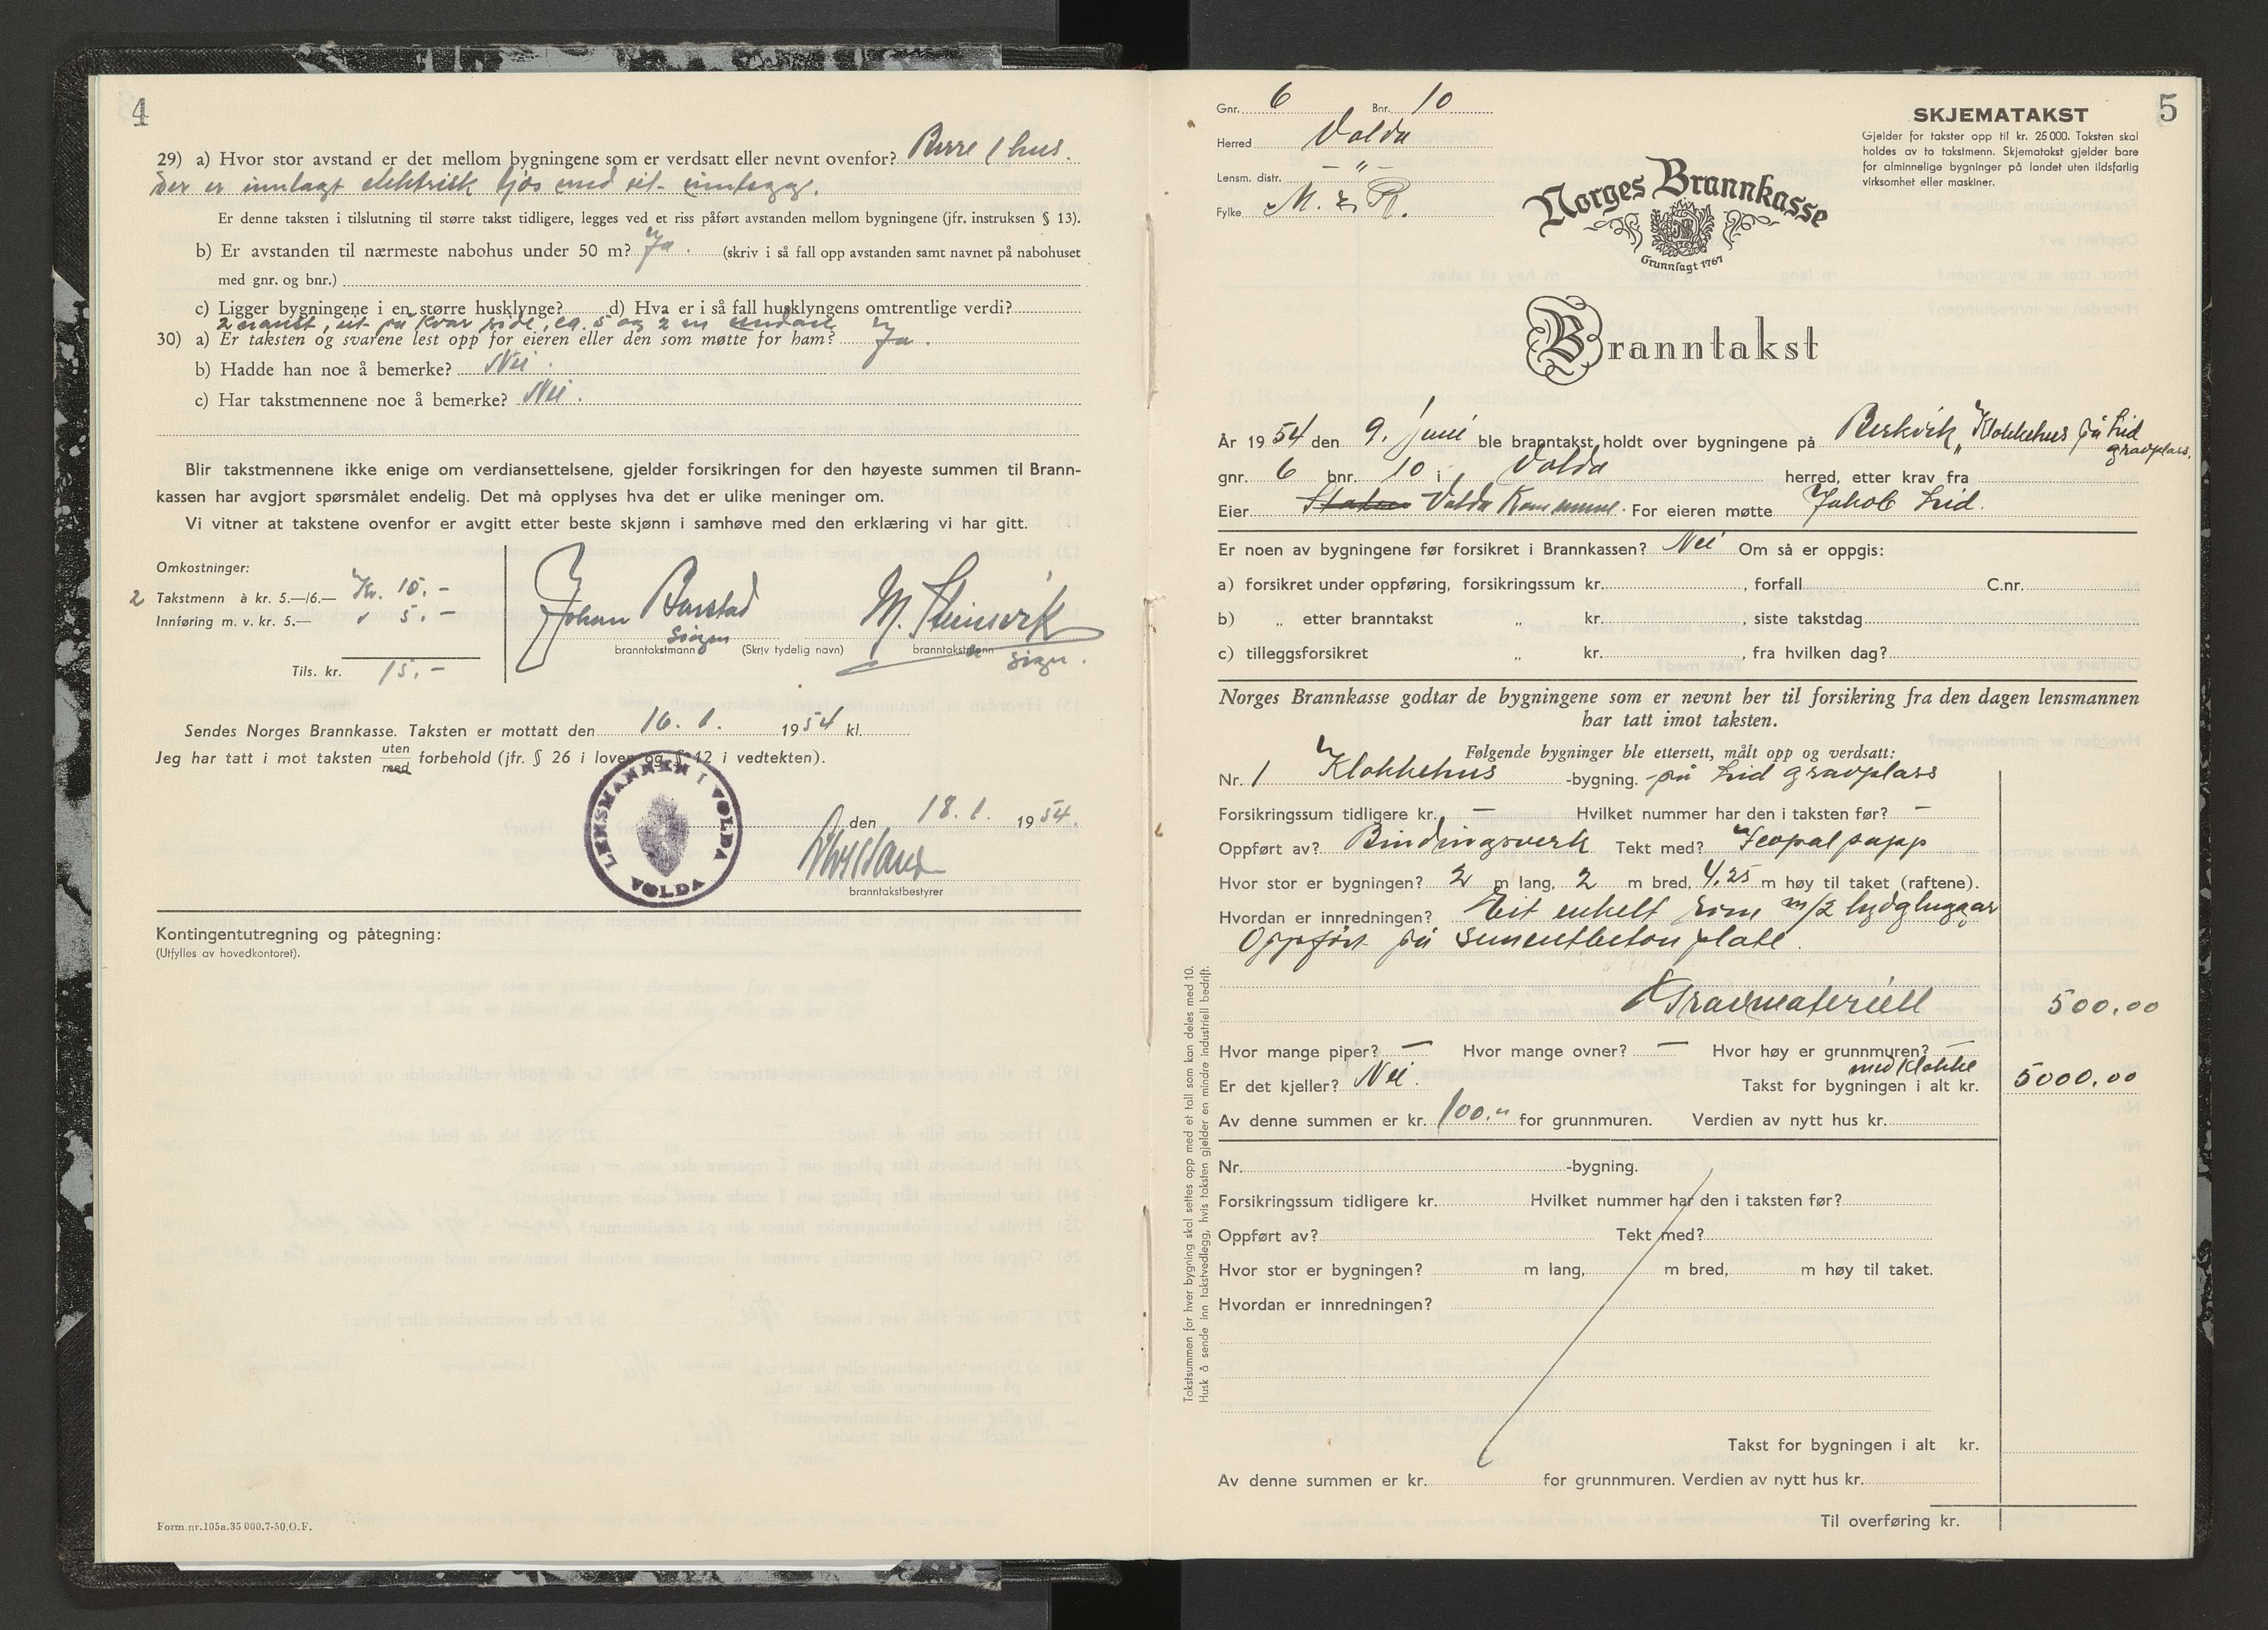 4
29) a) Hvor stor avstand er det mellom bygningene som er verdsatt eller nevnt ovenfor? Berre 1 hus.
Der er innlagt elektrisk ljos med sit innlegg.
Er denne taksten i tilslutning til større takst tidligere, legges ved et riss påført avstanden mellom bygningene (jfr. instruksen § 13).
b) Er avstanden til nærmeste nabohus under 50 m? Ja. (skriv i så fall opp avstanden samt navnet på nabohuset
med gnr. og bnr.)
c) Ligger bygningene i en større husklynge? d) Hva er i så fall husklyngens omtrentlige verdi?
2 naust, eit på kvar side, ca. 5 og 2 m undan
30) a) Er taksten og svarene lest opp for eieren eller den som møtte for ham? Ja.
b) Hadde han noe å bemerke? Nei.
c) Har takstmennene noe å bemerke? Nei.
Blir takstmennene ikke enige om verdiansettelsene, gjelder forsikringen for den høyeste summen til Brann-
kassen har avgjort spørsmålet endelig. Det må opplyses hva det er ulike meninger om.
Vi vitner at takstene ovenfor er avgitt etter beste skjønn i samhøve med den erklæring vi har gitt.
Omkostninger:
2 Takstmenn à kr. 5.—/6.— Kr. 10.-
Innføring m. v. kr. 5.— " 5.-
Tils. kr. 15.-
Johan Barstad M. Steinsvik
sign sign.
branntakstmann (Skriv tydelig navn) branntakstmann
Sendes Norges Brannkasse. Taksten er mottatt den 16. 1. 1954 kl.
Jeg har tatt i mot taksten uten/med forbehold (jfr. § 26 i loven og § 12 i vedtekten).
LENSMANNEN I VOLDA
VOLDA
den 18. 1. 1954.
branntakstbestyrer
Kontingentutregning og påtegning:
(Utfylles av hovedkontoret).
Form nr. 105a. 35 000. 7-50. O. F.
5
Gnr. 6 Bnr. 10
Herred Volda
Lensm. distr. — " —
Fylke M. & R.
SKJEMATAKST
Gjelder for takster opp til kr. 25 000. Taksten skal
holdes av to takstmenn. Skjematakst gjelder bare
for alminnelige bygninger på landet uten ildsfarlig
virksomhet eller maskiner.
Norges Brannkasse
Grunnlagt 1767
Branntakst
År 1954 den 9. juni ble branntakst holdt over bygningene på Berkvik, Klokkehus på Lid
gravplass.
gnr. 6 bnr. 10 i Volda herred, etter krav fra
Eier Staten Volda Kommune. For eieren møtte Jakob Lid.
Er noen av bygningene før forsikret i Brannkassen? Nei Om så er oppgis:
a) forsikret under oppføring, forsikringssum kr. , forfall C.nr.
b) „ etter branntakst „ kr. , siste takstdag
c) tilleggsforsikret „ kr. , fra hvilken dag?
Norges Brannkasse godtar de bygningene som er nevnt her til forsikring fra den dagen lensmannen
har tatt imot taksten.
Følgende bygninger ble ettersett, målt opp og verdsatt:
Nr. 1 Klokkehus -bygning. på Lid gravplass
Forsikringssum tidligere kr. — Hvilket nummer har den i taksten før? —
Oppført av? Bindingsverk Tekt med? Icopal papp
Hvor stor er bygningen? 2 m lang, 2 m bred, 4.25 m høy til taket (raftene).
Hvordan er innredningen? Eit enkelt rom m/2 lydgluggar
Oppført på sementbeton plate.
Gravmateriell 500.00
Hvor mange piper? — Hvor mange ovner? — Hvor høy er grunnmuren? —
med Klokke
Er det kjeller? Nei. Takst for bygningen i alt kr. 5000.00
Av denne summen er kr. 100.- for grunnmuren. Verdien av nytt hus kr.
Nr. -bygning.
Forsikringssum tidligere kr. Hvilket nummer har den i taksten før?
Oppført av? Tekt med?
Hvor stor er bygningen? m lang, m bred, m høy til taket.
Hvordan er innredningen?
Takst for bygningen i alt kr.
Av denne summen er kr. for grunnmuren. Verdien av nytt hus kr.
Til overføring kr.
Takstsummen for hver bygning skal settes opp med et tall som kan deles med 10.
Husk å sende inn takstvedlegg, hvis taksten gjelder en mindre industriell bedrift.